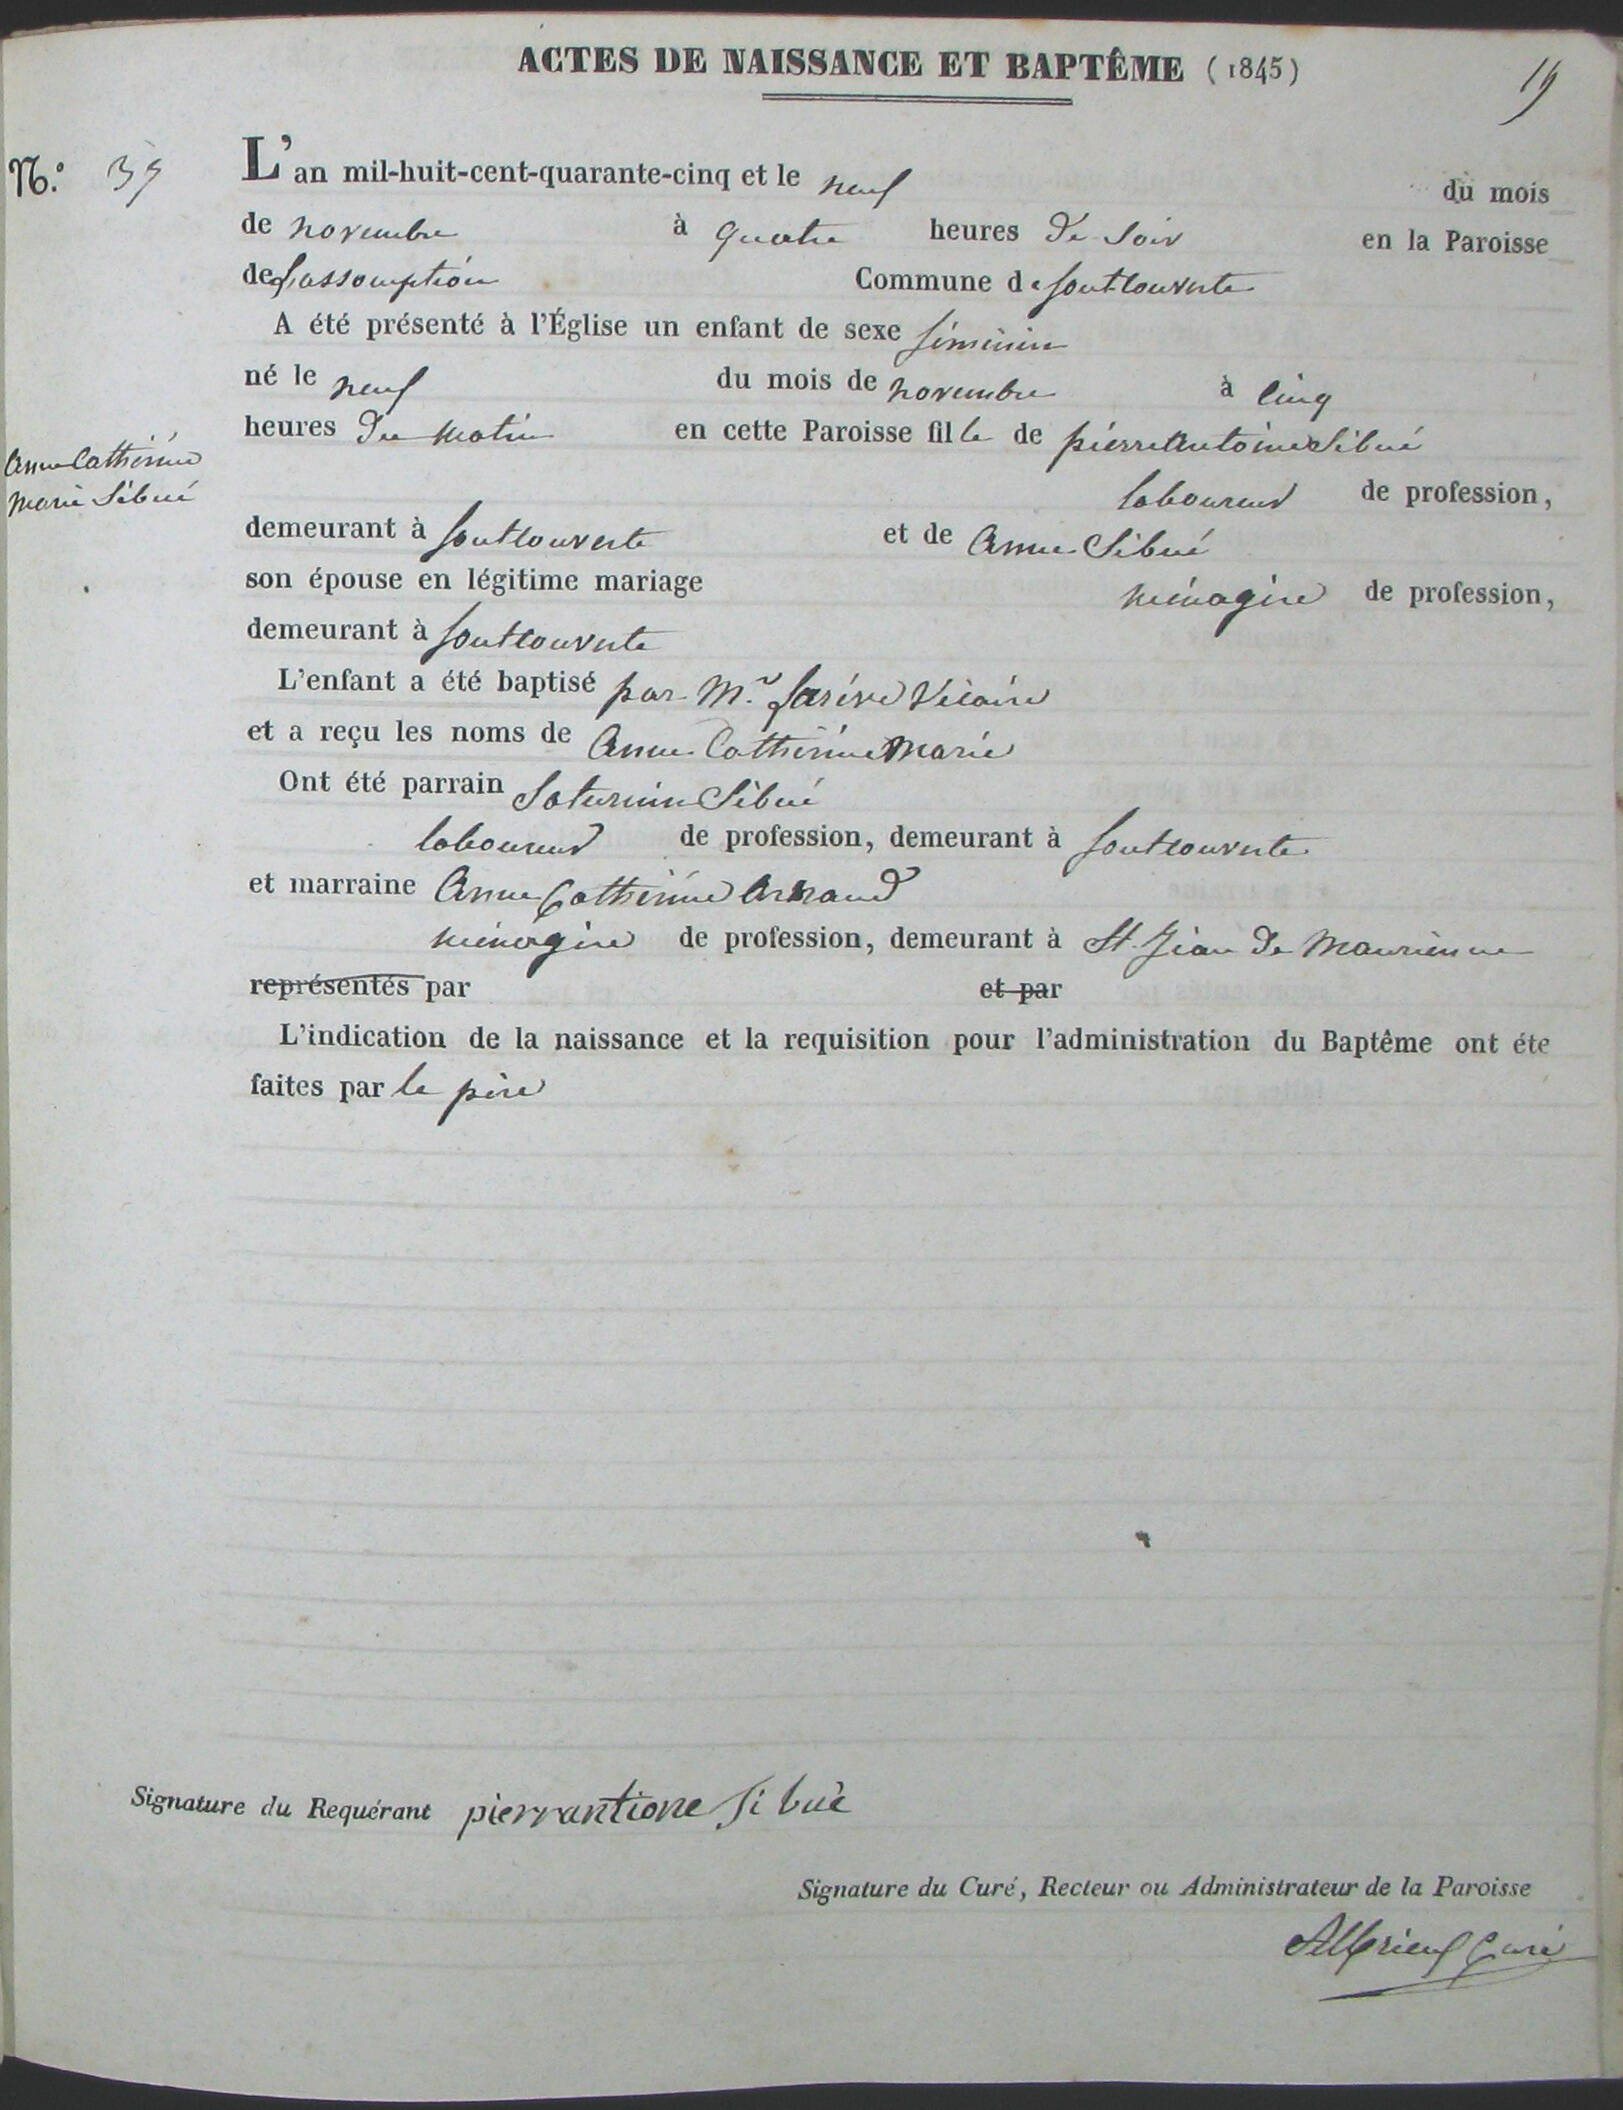 ACTES DE NAISSANCE ET BAPTÊME (1845)
19
N.º 39
L'an mil-huit-cent-quarante-cinq et le neuf du mois
de novembre à quatre heures de soir en la Paroisse
de Lassomption Commune de fontcouverte
A été présenté à l'Église un enfant de sexe féminin
né le neuf du mois de novembre à cinq
heures du matin en cette Paroisse fille de pierre antoine Sibué
anne Cathérine
marie Sibué
laboureur de profession,
demeurant à fontcouverte et de anne Sibué
son épouse en légitime mariage ménagère de profession,
demeurant à fontcouverte
L'enfant a été baptisé par Mr. Vicaire
et a reçu les noms de anne Cathérine Marie
Ont été parrain Saturnin Sibué
laboureur de profession, demeurant à fontcouverte
et marraine anne Cathérine arnaud
ménagère de profession, demeurant à St. Jean de Maurienne
représentés par et par
L'indication de la naissance et la requisition pour l'administration du Baptême ont éte
faites par le père
Signature du Requérant pierrantione Sibué
Signature du Curé, Recteur ou Administrateur de la Paroisse
Albrieux Curé